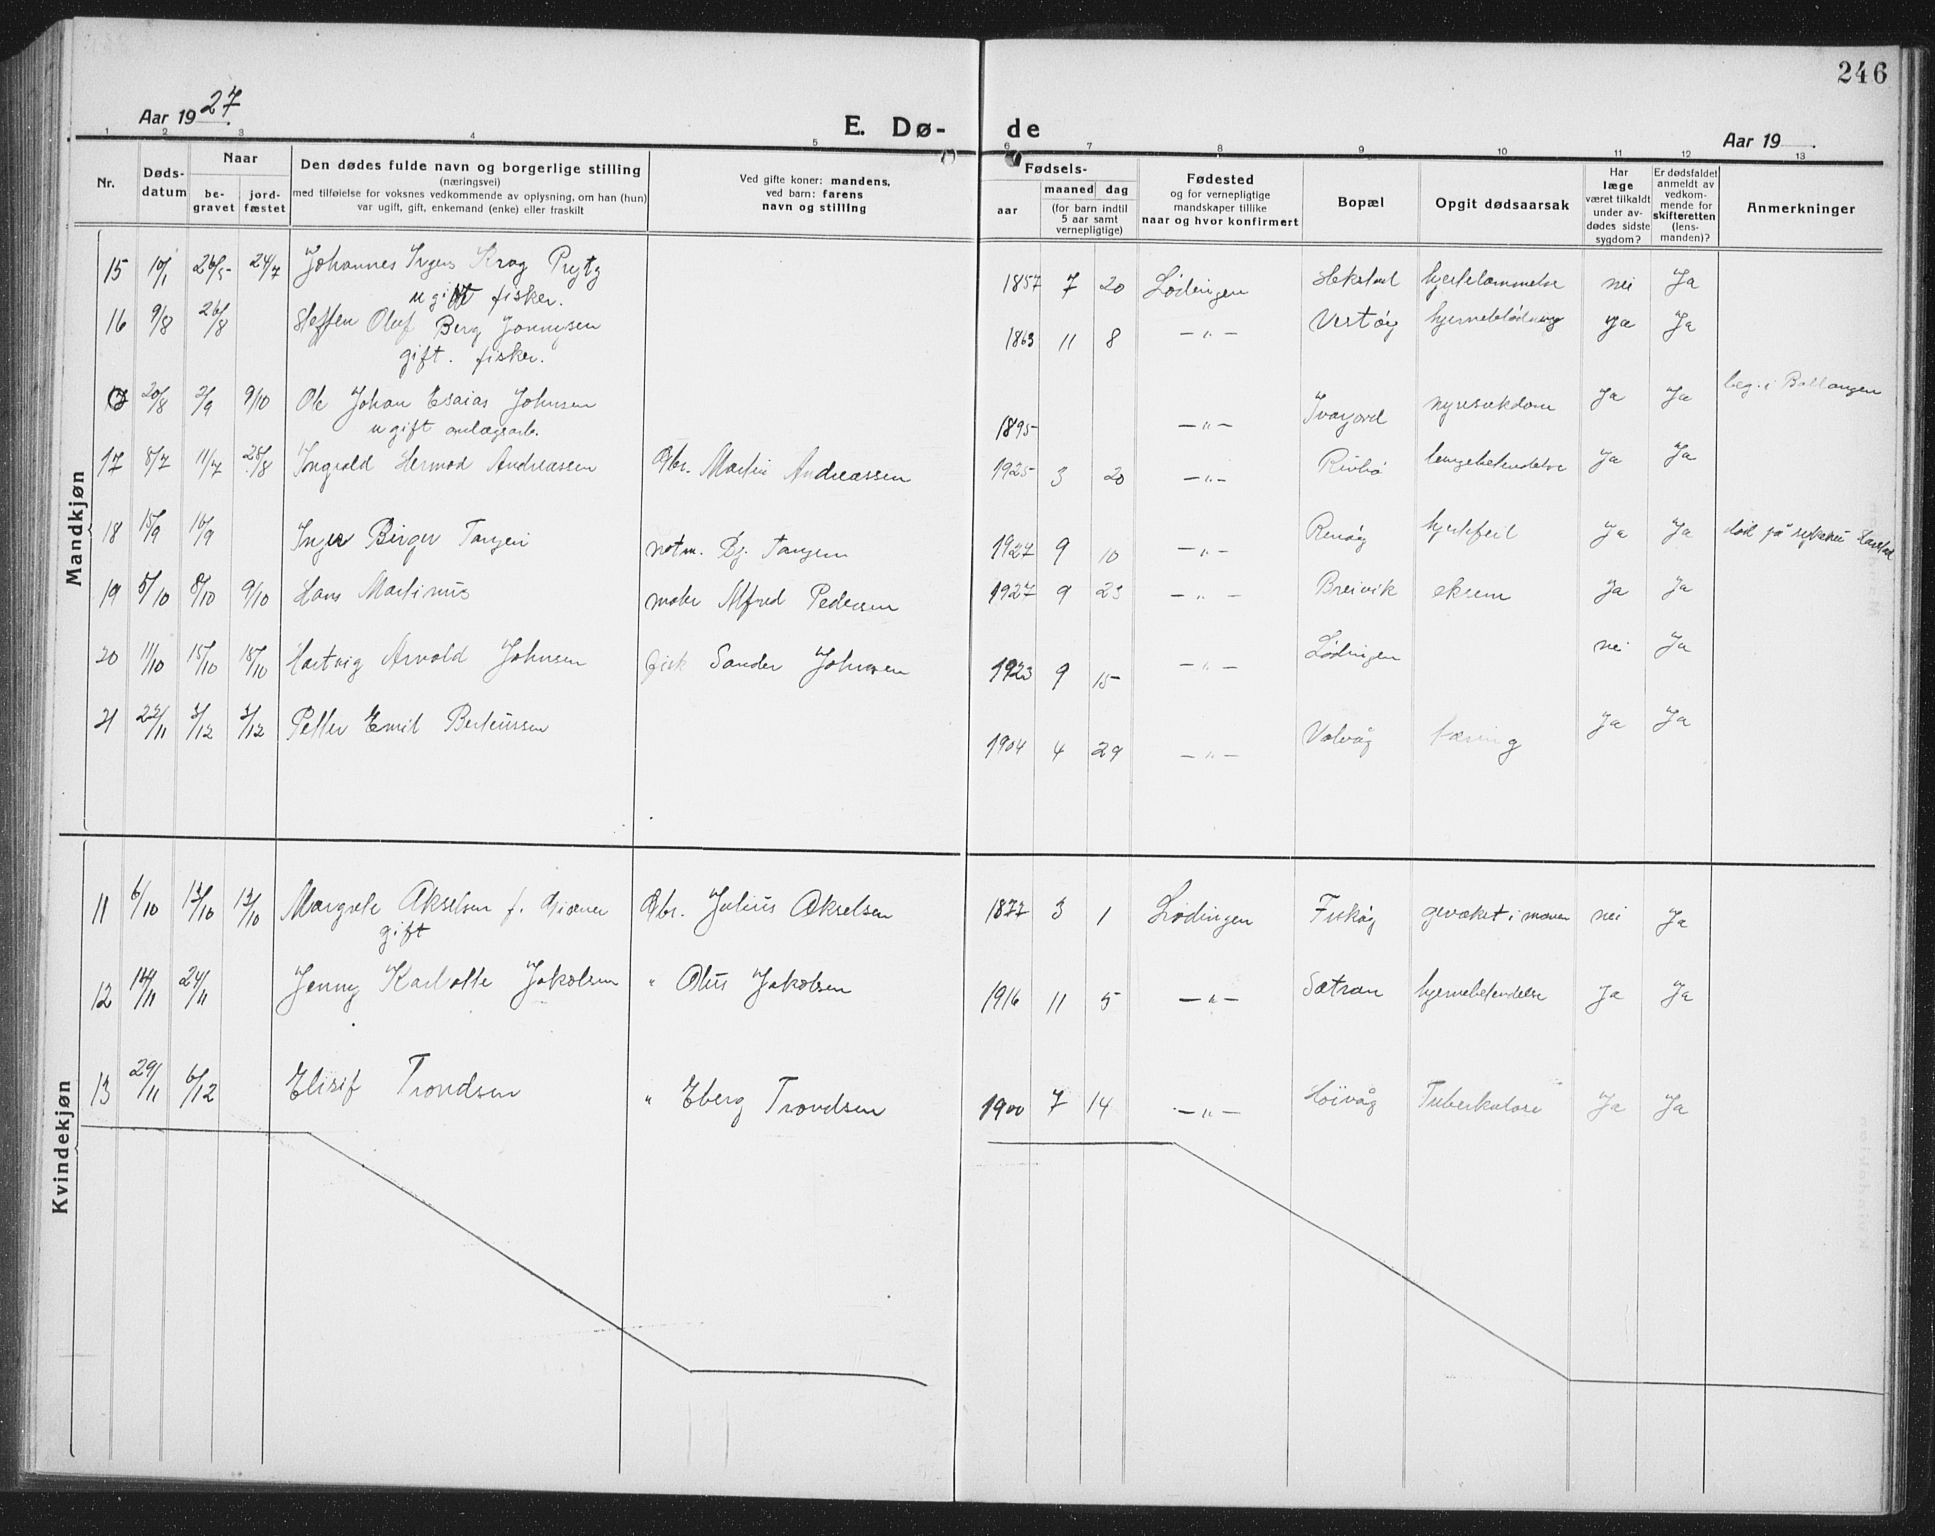 246
Aar 1927.
E. Dø-
de
Aar 19
1 2 3 4 5 6 7 8 9 10 11 12 13
Nr.
Døds-
datum
Naar
be-
gravet
jord-
fæstet
Den dødes fulde navn og borgerlige stilling
(næringsvei)
med tilføielse for voksnes vedkommende av oplysning, om han (hun)
var ugift, gift, enkemand (enke) eller fraskilt
Ved gifte koner: mandens,
ved barn: farens
navn og stilling
Fødsels-
aar
maaned dag
(for barn indtil
5 aar samt
vernepligtige)
Fødested
og for vernepligtige
mandskaper tillike
naar og hvor konfirmert
Bopæl
Opgit dødsaarsak
Har
læge
været tilkaldt
under av-
dødes sidste
sygdom?
Er dødsfaldet
anmeldt av
vedkom-
mende for
skifteretten
(lens-
manden)?
Anmerkninger
Mandkjøn
15 10/1 26/5 24/7 Johannes Krag 1857 7 20 Lødingen hjertelammelse nei Ja
ugift fisker.
16 9/8 26/8 Steffen Oluf Berg 1863 11 8 — " — hjerneblødning ja Ja
gift. fisker.
20/8 2/9 9/10 Ole Johan Esaias Johnsen 1895 — " — nyresykdom Ja Ja beg. i Ballangen
ugift anlægsarb.
17 8/7 11/7 28/8 Ingvald Hermod Andreassen Gbr. Martin Andreassen 1925 3 20 — " — Rinbø Ja Ja
18 15/9 16/9 Birger Tangen 1927 9 10 — " — hjertefeil Ja Ja død på Harstad
19 5/10 8/10 9/10 Hans Martinus Alfred Pedersen 1927 9 23 — " — Breivik eksem Ja Ja
20 11/10 15/10 18/10 Hartvig Arvold Johnsen fisk Sander Johnsen 1923 9 15 — " — Lødingen nei Ja
21 22/11 3/12 3/12 Petter Emil Berteussen 1904 4 29 — " — Valvåg tæring Ja Ja
Kvindekjøn
11 6/10 13/10 13/10 Margrete Akselsen f. Gbr. Julius Akselsen 1877 3 1 Lødingen Fiskøy gevækst i maven nei Ja
gift
12 24/11 Jenny Karlotte Jakobsen " Olus Jakobsen 1916 11 5 — " — Sætran hjernebetendelse Ja Ja
13 29/11 6/12 Elisif Trondsen " Eberg Trondsen 1900 7 14 — " — Høivåg Tuberkulose Ja Ja